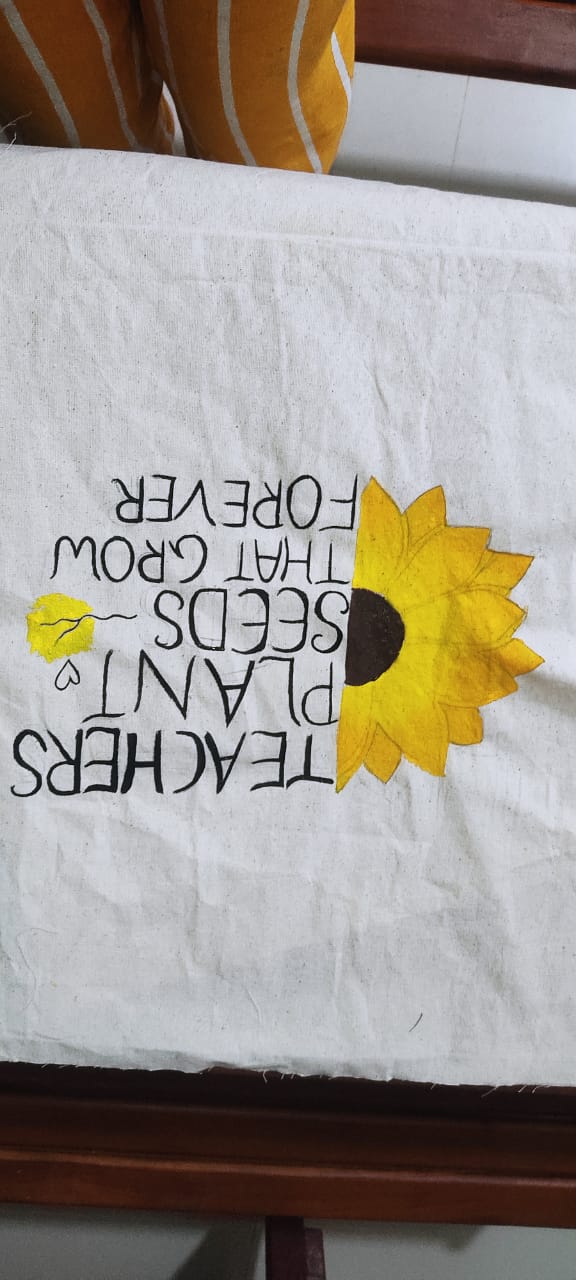 TEACHERS
PLANT
SEEDS
THAT GROW
FOREVER